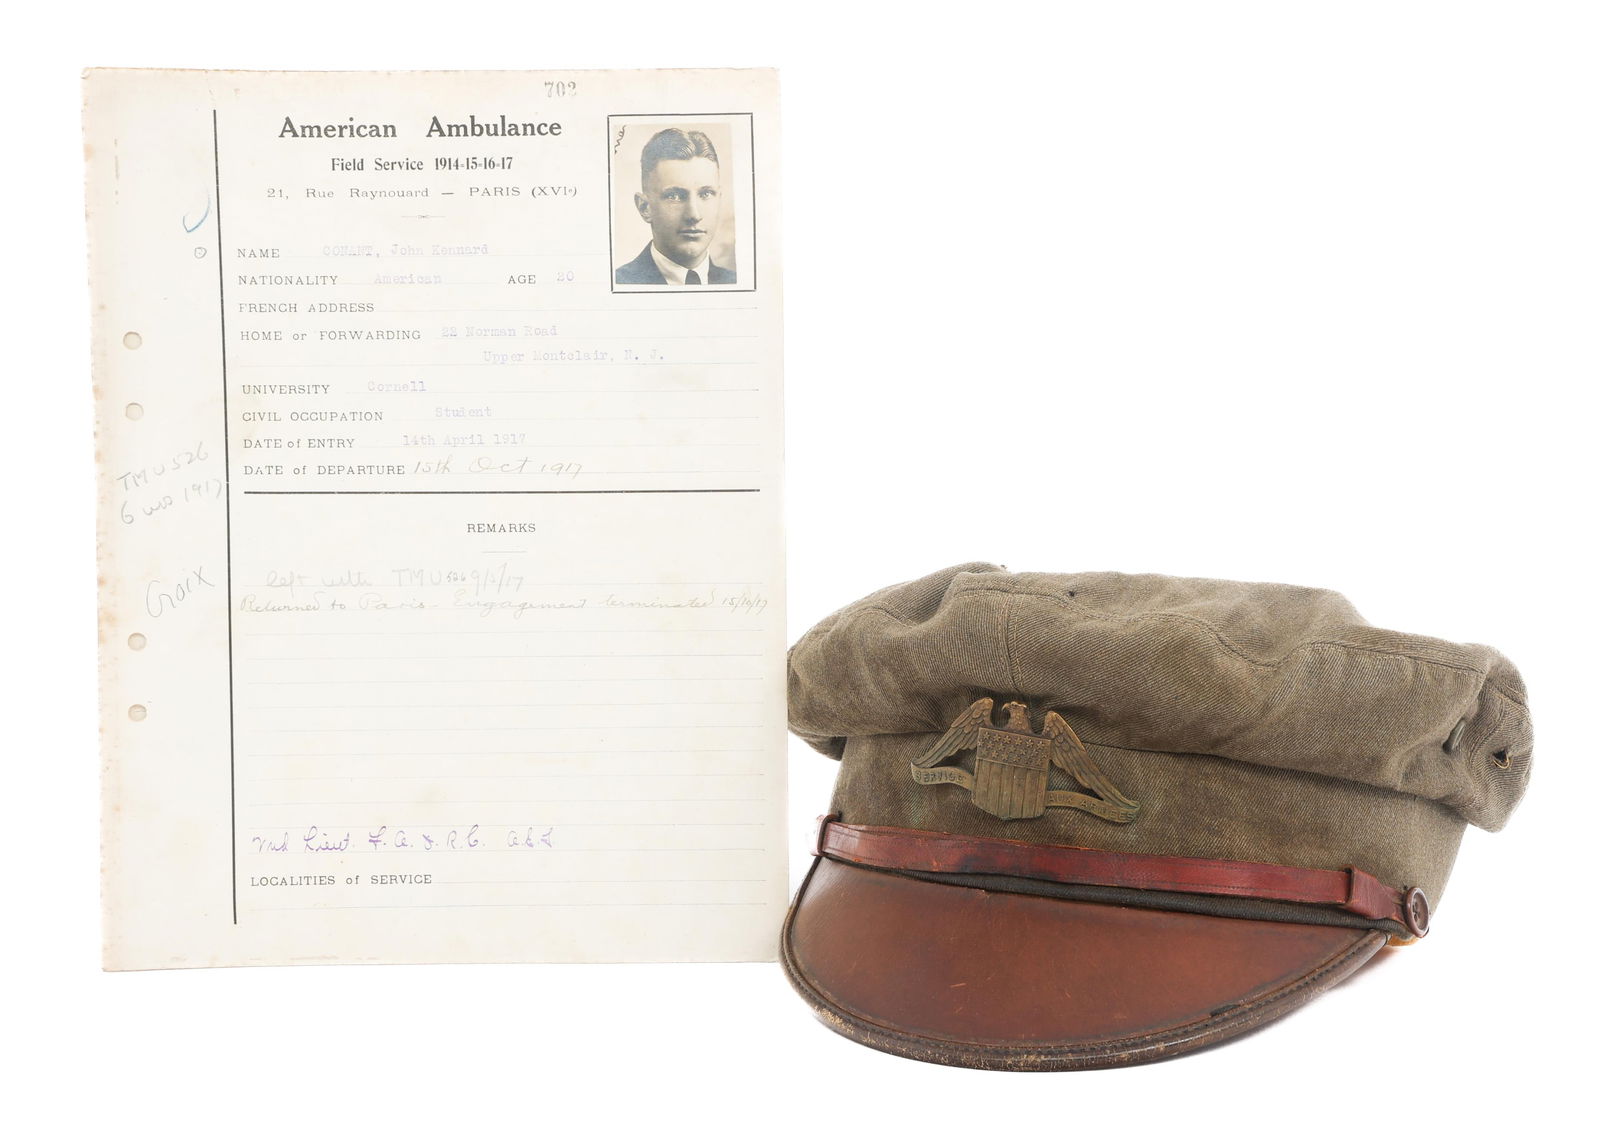 702
American Ambulance
Field Service 1914-15-16-17
21, Rue Raynouard — PARIS (XVIe)
NAME CONANT, John Kennard
NATIONALITY American AGE 20
FRENCH ADDRESS
HOME or FORWARDING 22 Norman Road
Upper Montclair, N. J.
UNIVERSITY Cornell
CIVIL OCCUPATION Student
DATE of ENTRY 14th April 1917
DATE of DEPARTURE 15th Oct 1917
TMU 526
6 1917
REMARKS
Croix
left with TMU 526 9/5/17
Returned to Paris - Engagement terminated 15/10/17
Lieut. F. A. R. C.
LOCALITIES of SERVICE
SERVICE AUX ARMÉES